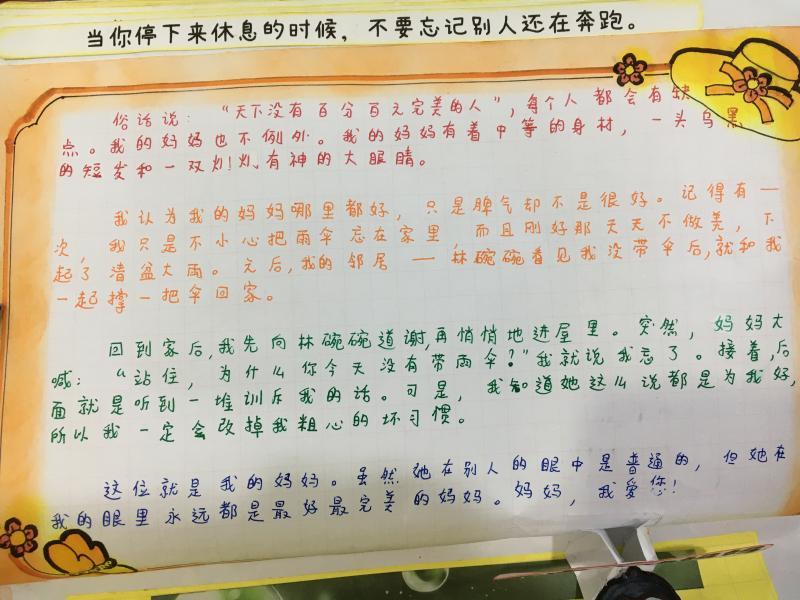 当你停下来休息的时候，不要忘记别人还在奔跑。
俗话说：“天下没有百分百元完美的人”，每个人都会有缺
点。我的妈妈也不例外。我的妈妈有着中等的身材，一头乌黑
的短发和一双炯炯有神的大眼睛。
我认为我的妈妈哪里都好，只是脾气却不是很好。记得有一
次，我只是不小心把雨伞忘在家里，而且刚好那天天不做美，下
起了倾盆大雨。元后，我的邻居——林碗碗看见我没带伞后，就和我
一起撑一把伞回家。
回到家后，我先向林碗碗道谢，再悄悄地进屋里。突然，妈妈大
喊：“站住，为什么你今天没有带雨伞？”我就说我忘了。接着，后
面就是听到一堆训斥我的话。可是，我知道她这么说都是为我好，
所以我一定会改掉我粗心的坏习惯。
这位就是我的妈妈。虽然她在别人的眼中是普通的，但她在
我的眼里永远都是最好最完美的妈妈。妈妈，我爱您！